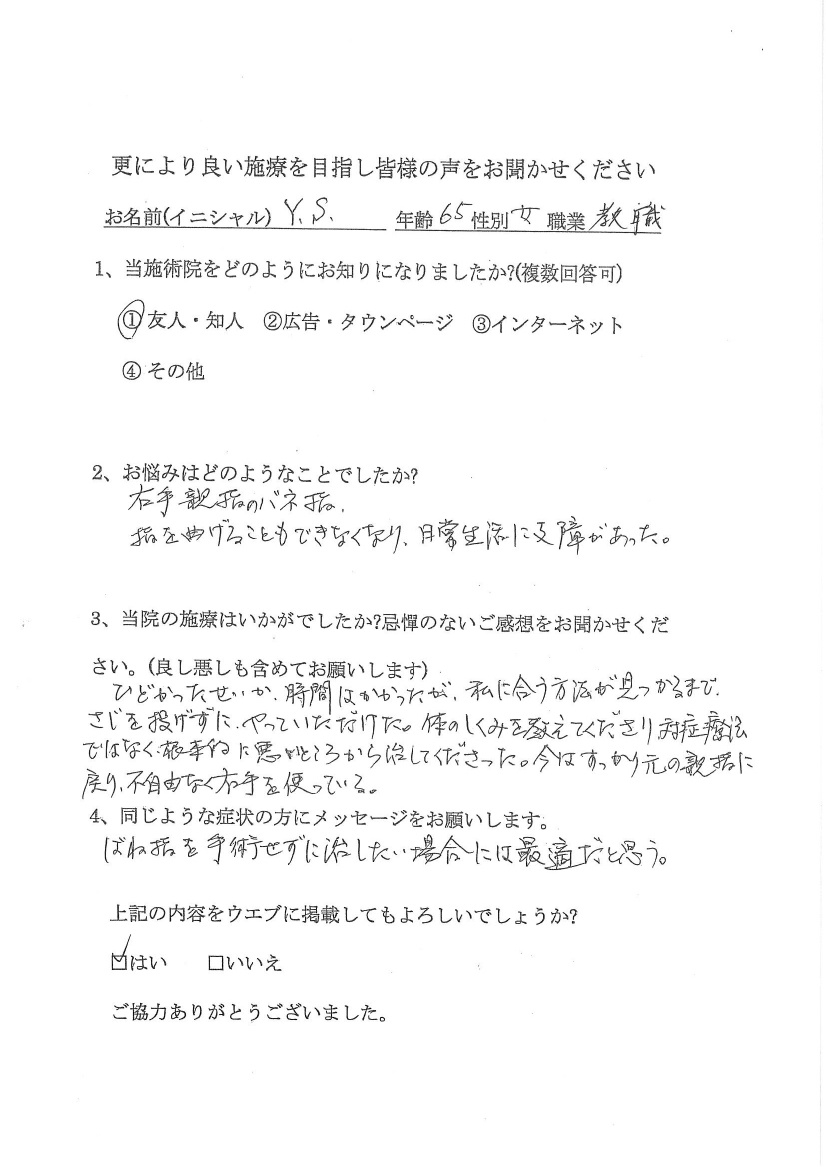 更により良い施療を目指し皆様の声をお聞かせください
お名前(イニシャル) Y.S. 年齢 65 性別 女 職業 教職
1、当施術院をどのようにお知りになりましたか?(複数回答可)
①友人・知人 ②広告・タウンページ ③インターネット
④ その他
2、お悩みはどのようなことでしたか?
右手親指のバネ指、
指をまげることもできなくなり、日常生活に支障があった。
3、当院の施療はいかがでしたか?忌憚のないご感想をお聞かせくだ
さい。(良し悪しも含めてお願いします)
ひどかったせいか、時間はかかったが、私に合う方法が見つかるまで、
さじを投げずに、やっていただけた。体のしくみを教えてくださり対症療法
ではなく、根本的に悪いところから治してくださった。今はすっかり元の親指に
戻り、不自由なく右手を使っている。
4、同じような症状の方にメッセージをお願いします。
ばね指を手術せずに治したい場合には最適だと思う。
上記の内容をウエブに掲載してもよろしいでしょうか?
☑はい □いいえ
ご協力ありがとうございました。